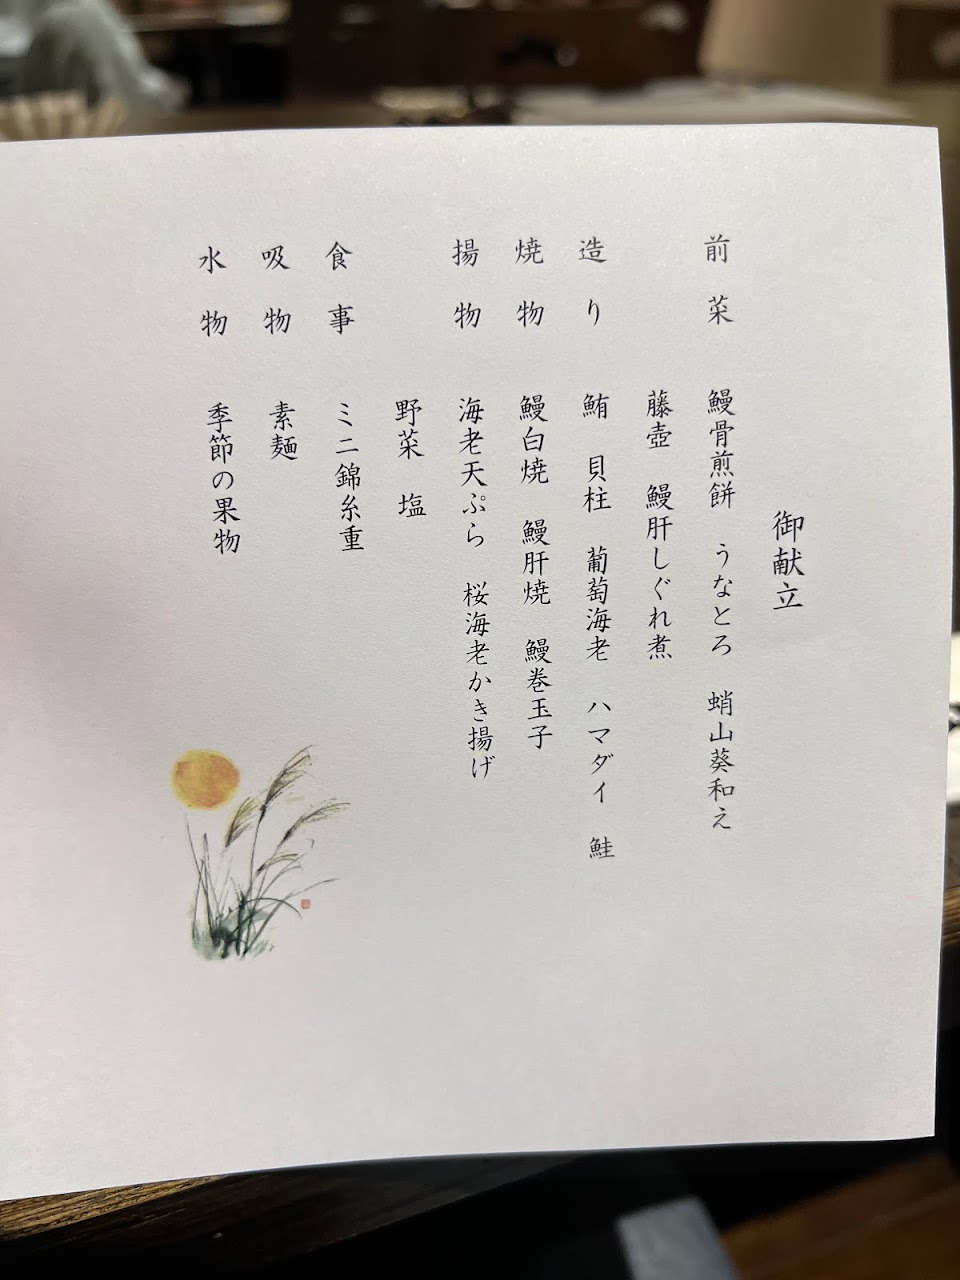 御献立
前菜　鰻骨煎餅　うなとろ　蛸山葵和え
藤壺　鰻肝しぐれ煮
造り　鮪　貝柱　葡萄海老　ハマダイ　鮭
焼物　鰻白焼　鰻肝焼　鰻巻玉子
揚物　海老天ぷら　桜海老かき揚げ
野菜　塩
食事　ミニ錦糸重
吸物　素麺
水物　季節の果物